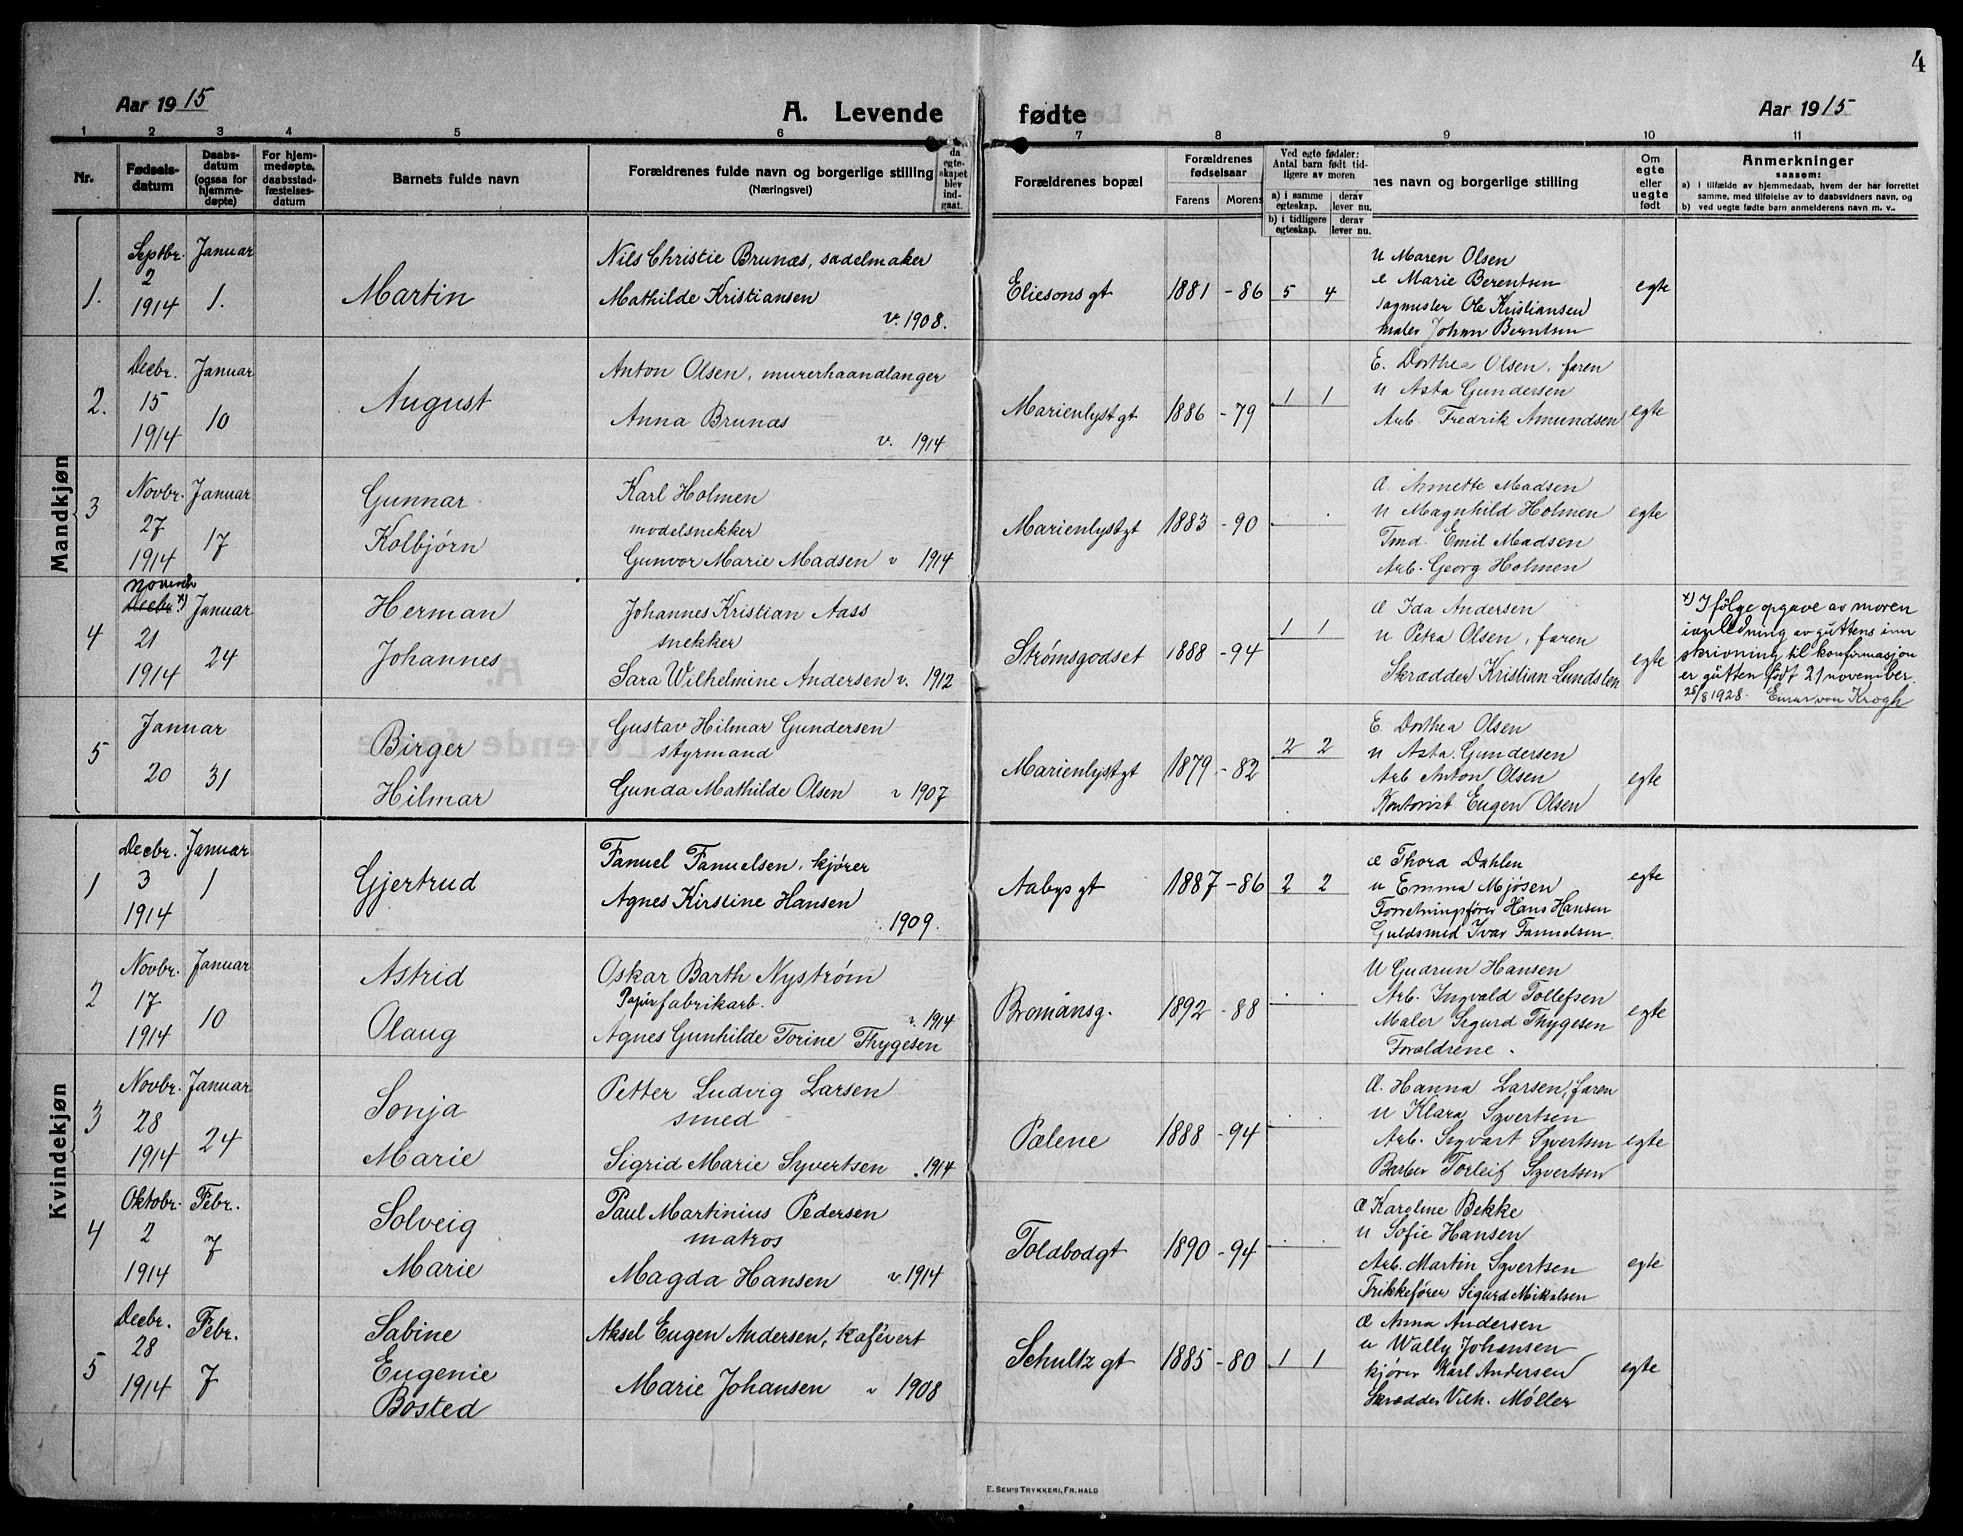 4
Aar 1915
A. Levende
fødte
Aar 1915
1 2 3 4 5 6 7 8 9 10 11
Nr.
Fødsels-
datum
Daabs-
datum
(ogsaa for
hjemme-
døpte)
For hjem-
medøpte,
daabsstad-
fæstelses-
datum
Barnets fulde navn
Forældrenes fulde navn og borgerlige stilling
(Næringsvei)
da
egte-
skapet
blev
ind-
gaat.
Forældrenes bopæl
Forældrenes
fødselsaar
Farens
Morens
Ved egte fødsler:
Antal barn født tid-
ligere av moren
a) i samme
egteskap.
derav
lever nu.
b) i tidligere
egteskap.
derav
lever nu.
nes navn og borgerlige stilling
Om
egte
eller
uegte
født
Anmerkninger
sansom:
a) i tilfælde av hjemmedaab, hvem der har forrettet
samme, med tilføielse av to daabsvidners navn, og
b) ved uegte fødte barn anmelderens navn m. v..
Mandkjøn
1.
Septbr.
2
1914
Januar
1.
Martin
Nils Christie Brunæs, sadelmaker
Mathilde Kristiansen
v. 1908.
Eliesonsgt
1881 - 86
5 4
U Maren Olsen
E Marie Berentsen
Sagmester Ole Kristiansen
maler Johan Berntsen
egte
2.
Decbr.
15
1914
Januar
10
August
Anton Olsen, murerhaandlanger
Anna Brunæs
v. 1914
Marienlystgt
1886 - 79
1 1
E. Dorthea Olsen, faren
U Asta Gundersen
Arb. Fredrik Amundsen
egte
3
Novbr.
27
1914
Januar
17
Gunnar
Kolbjørn
Karl Holmen
modelsnekker
Gunvor Marie Madsen v 1914
Marienlystgt
1883 - 90
Æ. Annette Madsen
U Magnhild Holmen
Tmd. Emil Madsen
Arb. Georg Holmen
egte
4
novemb
Decbr. x)
21
1914
Januar
24
Herman
Johannes
Johannes Kristian Aass
snekker
Sara Wilhelmine Andersen v. 1912
Strømsgodset
1888 - 94
1 1
Æ Ida Andersen
U Petra Olsen, faren
Skrædder Kristian Lundsten
egte
x) Ifølge opgave av moren
i anledning av guttens inn
skrivning til konfirmasjon
er gutten født 21 november.
25/8 1928. Einar von Krogh
5
Januar
20
31
Birger
Hilmar
Gustav Hilmar Gundersen
styrmand
Gunda Mathilde Olsen v 1907
Marienlystgt
1879 - 82
2 2
E. Dorthea Olsen
U Asta Gundersen
Arb Anton Olsen
Kontorist Eugen Olsen
egte
Kvindekjøn
1
Decbr.
3
1914
Januar
1
Gjertrud
Fanuel Fanuelsen, kjører
Agnes Kirstine Hansen
1909.
Aabysgt
1887 - 86
2 2
Æ Thora Dahlen
U Emma Mjøsen
Forretningsfører Hans Hansen
Guldsmed Ivar Fanuelsen
egte
2
Novbr.
17
1914
Januar
10
Astrid
Olaug
Oskar Barth Nystrøm
Papirfabrikarb.
v. 1914
Agnes Gunhilde Torine Thygesen
Bromansg.
1892 - 88
U Gudrun Hansen
Arb. Ingvald Tollefsen
Maler Sigurd Thygesen
Forældrene.
egte
3
Novbr.
28
1914
Januar
24
Sonja
Marie
Petter Ludvig Larsen
smed
Sigrid Marie Syvertsen v. 1914
Pælene
1888 - 94
Æ. Hanna Larsen, faren
U Klara Syvertsen
Arb. Sigvart Syvertsen
Barber Torleif Syvertsen
egte
4
Oktobr.
2
1914
Febr.
7
Solveig
Marie
Paul Martinius Pedersen
matros
Magda Hansen v. 1914
Toldbodgt
1890 - 94
Æ Karoline Bekke
U Sofie Hansen
Arb. Martin Syvertsen
Trikkefører Sigurd Mikalsen
egte
5
Decbr.
28
1914
Febr.
7
Sabine
Eugenie
Bosted
Aksel Eugen Andersen, kafévert
Marie Johansen v 1908
Schultzgt
1885 - 80
1 1
Æ Anna Andersen
U Wally Johansen
kjører Karl Andersen
Skrædder Vilh. Møller
egte
E. SEM'S TRYKKERI, FR. HALD